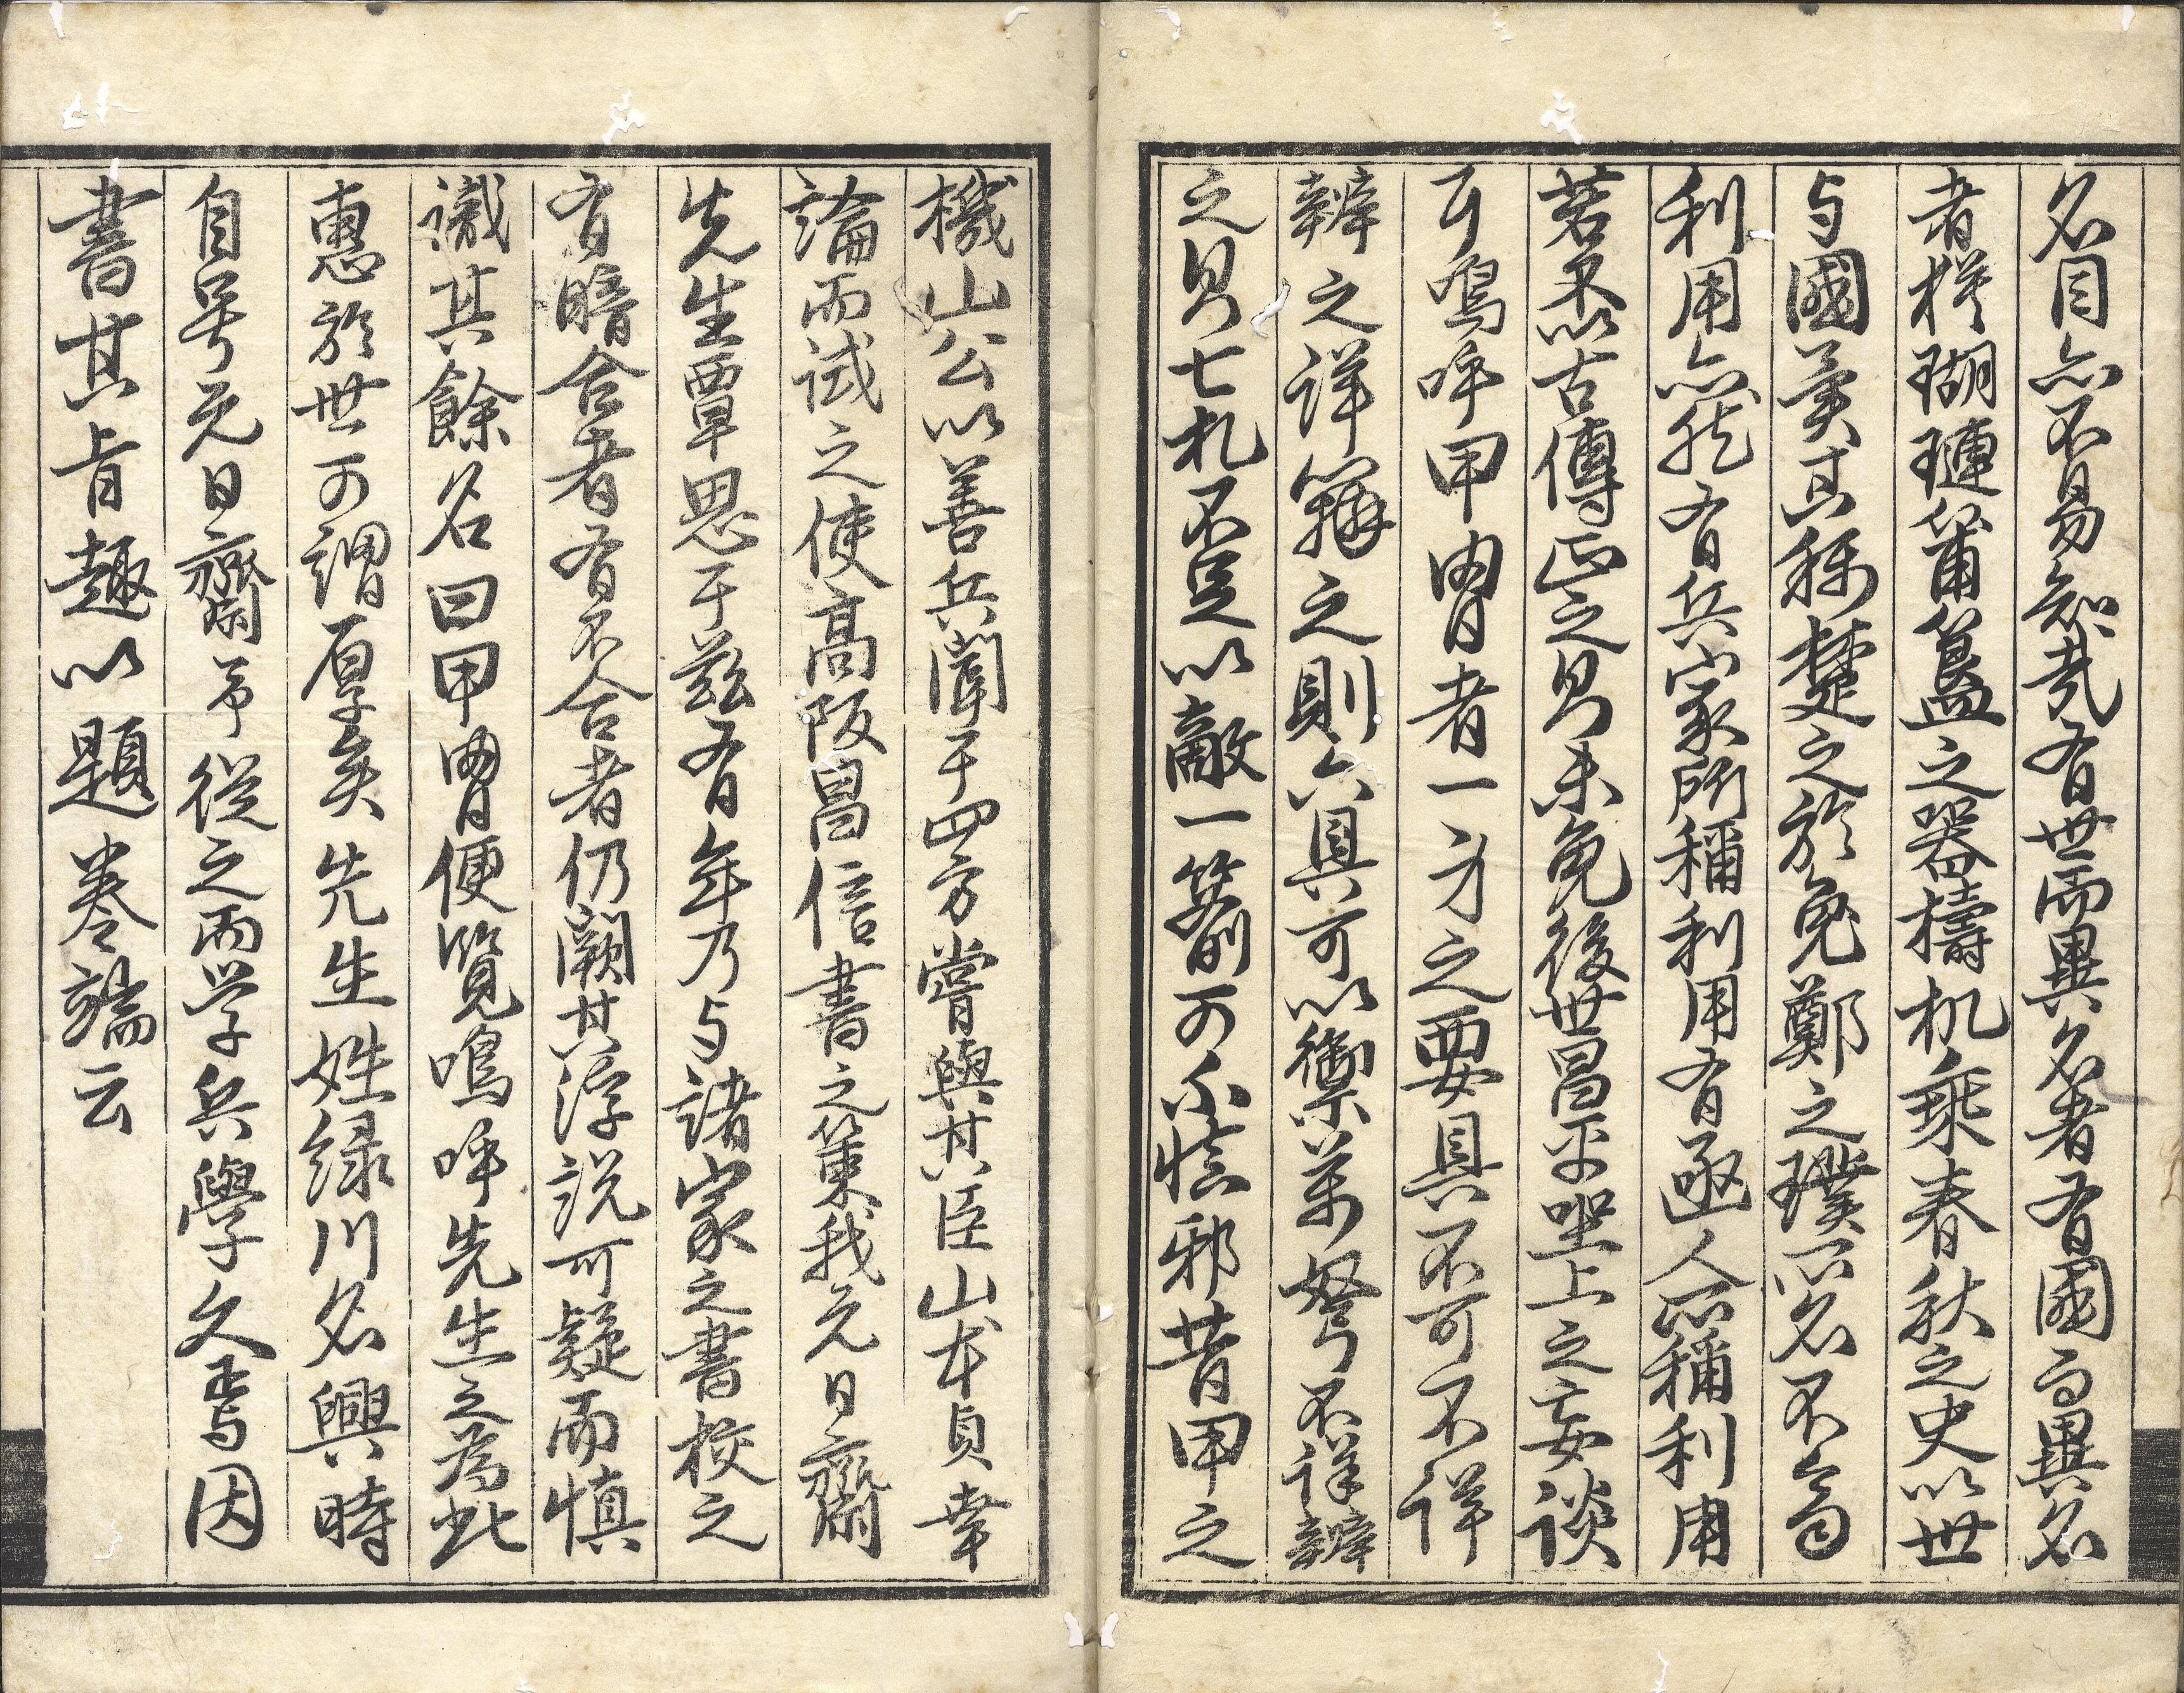 名目亦不易知哉有世而異名者有國而異名
者様瑚璉簠簋之器檮杌乗春秋之史以世
与國異其称楚之於菟鄭之璞以名不
利用亦然有兵家所稱利用有函人所稱利用
若不以古傳正之則未免後世昌平坐上之妄談
可嗚呼甲冑者一身之要具不可不詳
辨之詳辨之則六具可以禦萬弩不詳辨
之則七札不足以敵一箭可不慎邪昔甲之
機山公以善兵聞于四方嘗與其臣山本貞幸
論而試之使高阪昌信書之策我元日齋
先生覃思于茲有年乃与諸家之書校之
有暗合者有不合者仍闕其浮説可疑而慎
識其餘名曰甲冑便覧嗚呼先生之為此
惠於世可謂厚矣先生姓緑川名興時
自号元日齋予従之而学兵學久焉因
書其旨趣以題巻端云